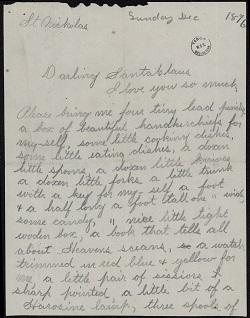 St Nicholas
Sunday Dec 18
Darling Santa Klaus
I love you so much
Please bring me four tiny lead
a box of beautiful handkerchiefs for
my self, some little cooking dishes,
some little eating dishes, a dozen
little spoons, a dozen little knives
a dozen little forks, a little trunk
with a key for my self a foot
& a half long a foot tall one " wide
some candy, " nice little tight
wooden box, a book that tells all
about Heavens a watch
trimmed in red blue & yellow for
me, a little pair of scissors
sharp pointed, a little bit of a
lamp, three spools of